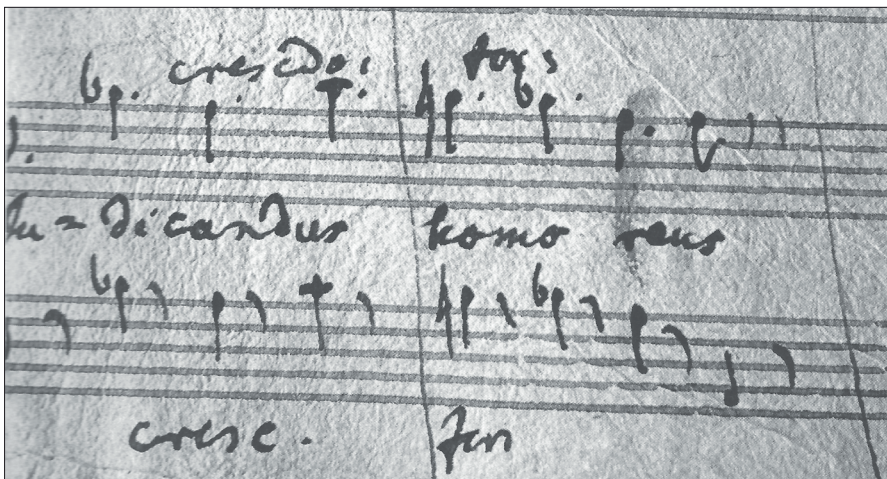 crescdo: for:
Ju = dicandus homo reus
cresc. for